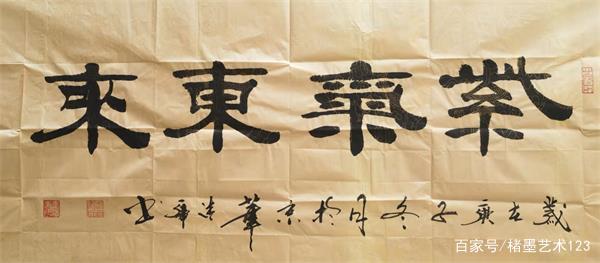 紫氣東來
歲在庚子冬月於京華书
百家号/楮墨艺术123